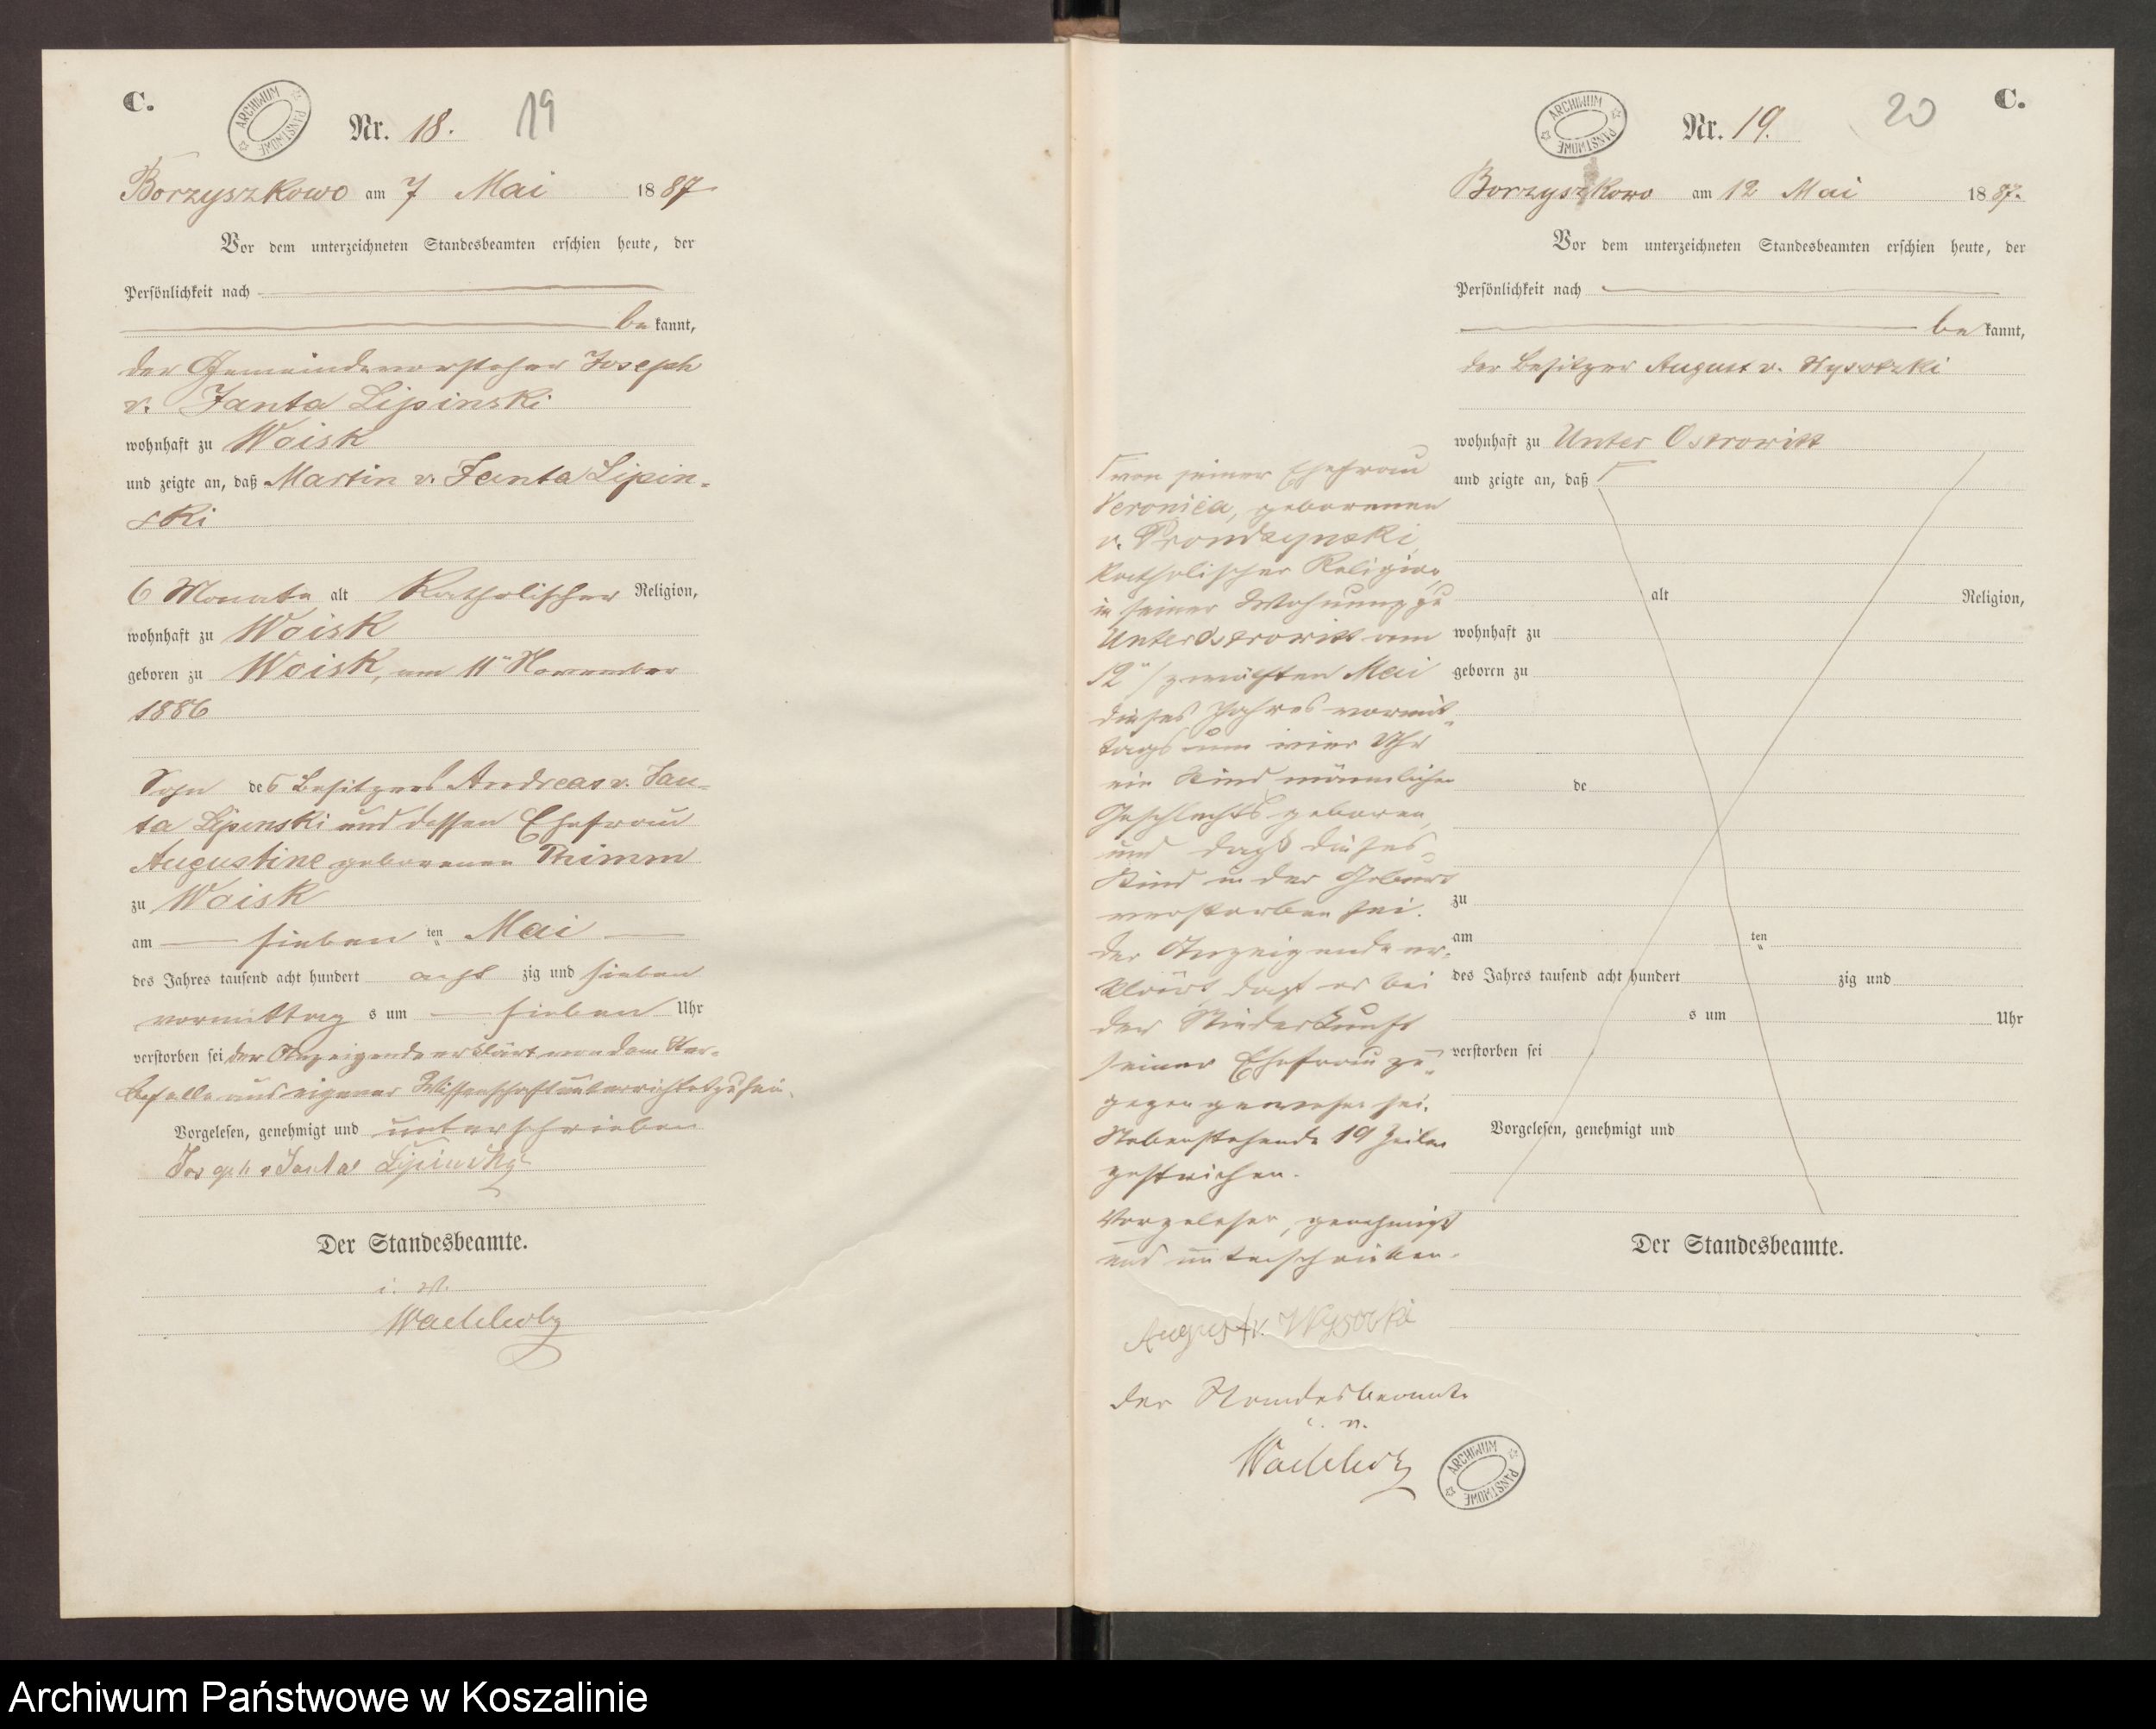 C.
ARCHIWUM PAŃSTWOWE
Nr. 18. 19
Borzyszkowo am 7 Mai 1887.
Vor dem unterzeichneten Standesbeamten erschien heute, der
Persönlichkeit nach
be kannt,
der Gemeindevorsteher Joseph
v. Janta Lipinski
wohnhaft zu Woisk
und zeigte an, daß Martin v. Janta Lipin-
ski
6 Monate alt Katholischer Religion,
wohnhaft zu Woisk
geboren zu Woisk, am 11" November
1886
Sohn des Besitzers Andreas v. Jan-
ta Lipinski und dessen Ehefrau
Augustine geborenen Thimm
zu Woisk
am sieben ten Mai
des Jahres tausend acht hundert acht zig und sieben
vormittag s um sieben Uhr
verstorben sei der Anzeigende erklärt von dem Ster-
befalle aus eigener Wissenschaft unterrichtet zu sein.
Vorgelesen, genehmigt und unterschrieben
Joseph v Janta Lipinsky
Der Standesbeamte.
i. V.
C.
ARCHIWUM PAŃSTWOWE
Nr. 19. 20
Borzyszkowo am 12 Mai 1887.
Vor dem unterzeichneten Standesbeamten erschien heute, der
Persönlichkeit nach
be kannt,
der Besitzer August v. Wysotzki
wohnhaft zu Unter Ostrowitt
und zeigte an, daß
alt Religion,
wohnhaft zu
geboren zu
de
zu
am ten
des Jahres tausend acht hundert zig und
s um Uhr
verstorben sei
Vorgelesen, genehmigt und
Der Standesbeamte.
von seiner Ehefrau
Veronica, geborenen
v. Prondzynski
katholischer Religion,
in seiner Wohnung zu
Unterostrowitt am
12" zwölften Mai
dieses Jahres vormit-
tags um vier Uhr
ein Kind männlichen
Geschlechts geboren,
und daß dieses
Kind in der Geburt
verstorben sei.
Der Anzeigende er-
klärt, daß er bei
der Niederkunft
seiner Ehefrau zu-
gegen gewesen sei.
Nebenstehende 19 Zeilen
gestrichen.
Vorgelesen, genehmigt
und unterschrieben.
August v. Wysocki
Der Standesbeamte
i. V.
ARCHIWUM PAŃSTWOWE
Archiwum Państwowe w Koszalinie